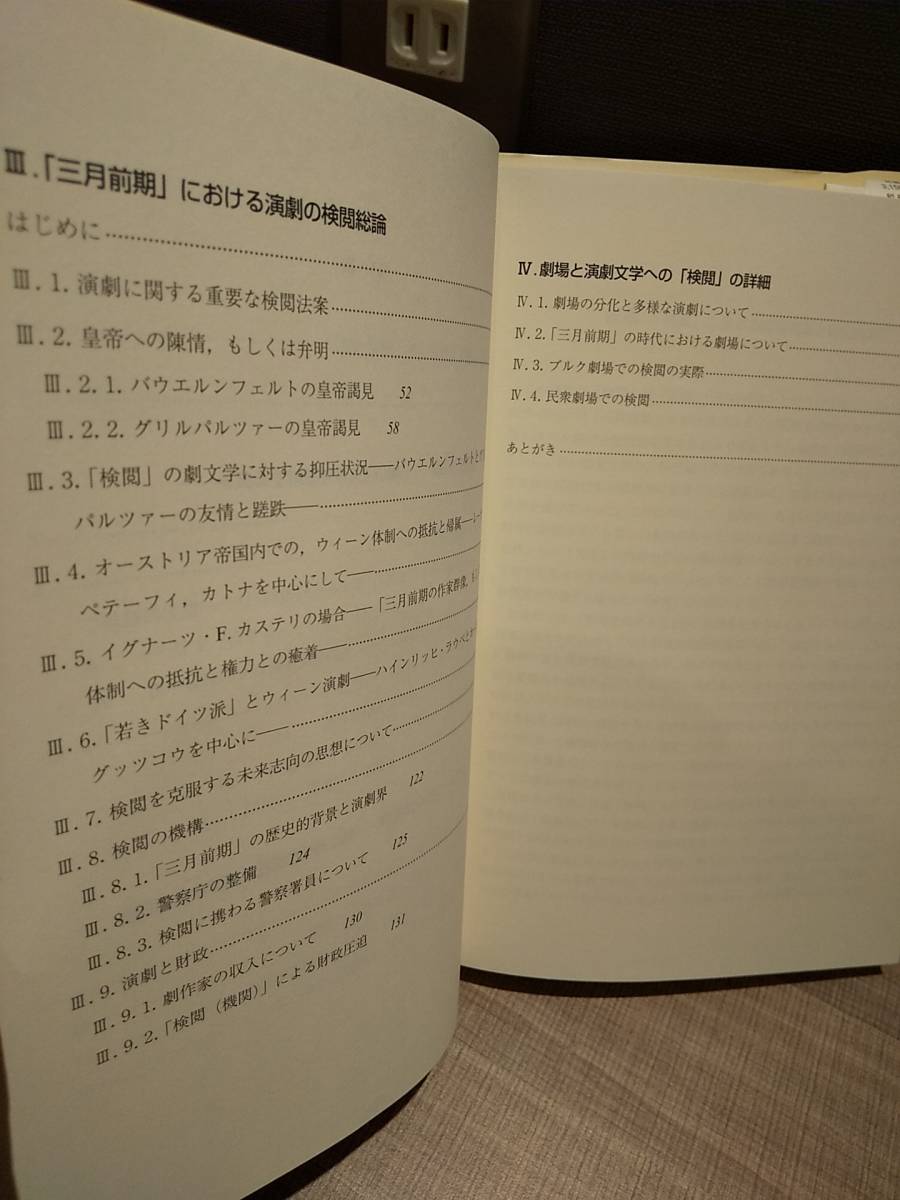 Ⅲ.「三月前期」における演劇の検閲総論
はじめに
Ⅲ.1. 演劇に関する重要な検閲法案
Ⅲ.2. 皇帝への陳情，もしくは弁明
Ⅲ.2.1. バウエルンフェルトの皇帝謁見 52
Ⅲ.2.2. グリルパルツァーの皇帝謁見 58
Ⅲ.3.「検閲」の劇文学に対する抑圧状況──バウエルンフェルトと
パルツァーの友情と蹉跌──
Ⅲ.4. オーストリア帝国内での，ウィーン体制への抵抗と帰属──
ペテーフィ，カトナを中心にして──
Ⅲ.5. イグナーツ・F. カステリの場合──「三月前期の作家群像，
体制への抵抗と権力との癒着──
Ⅲ.6.「若きドイツ派」とウィーン演劇──ハインリッヒ・ラウベと
グッツコウを中心に──
Ⅲ.7. 検閲を克服する未来志向の思想について
Ⅲ.8. 検閲の機構
Ⅲ.8.1.「三月前期」の歴史的背景と演劇界 122
Ⅲ.8.2. 警察庁の整備 124
Ⅲ.8.3. 検閲に携わる警察署員について 125
Ⅲ.9. 演劇と財政
Ⅲ.9.1. 劇作家の収入について 130
Ⅲ.9.2.「検閲（機関）」による財政圧迫 131
Ⅳ. 劇場と演劇文学への「検閲」の詳細
Ⅳ.1. 劇場の分化と多様な演劇について
Ⅳ.2.「三月前期」の時代における劇場について
Ⅳ.3. ブルク劇場での検閲の実際
Ⅳ.4. 民衆劇場での検閲
あとがき